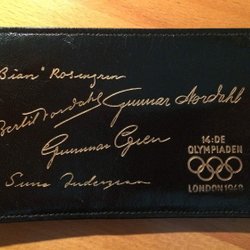 "Bian" Rosengren
Bertil Nordahl
Gunnar Nordahl
Gunnar Gren
Sune Andersson
14:DE
OLYMPIADEN
LONDON 1948